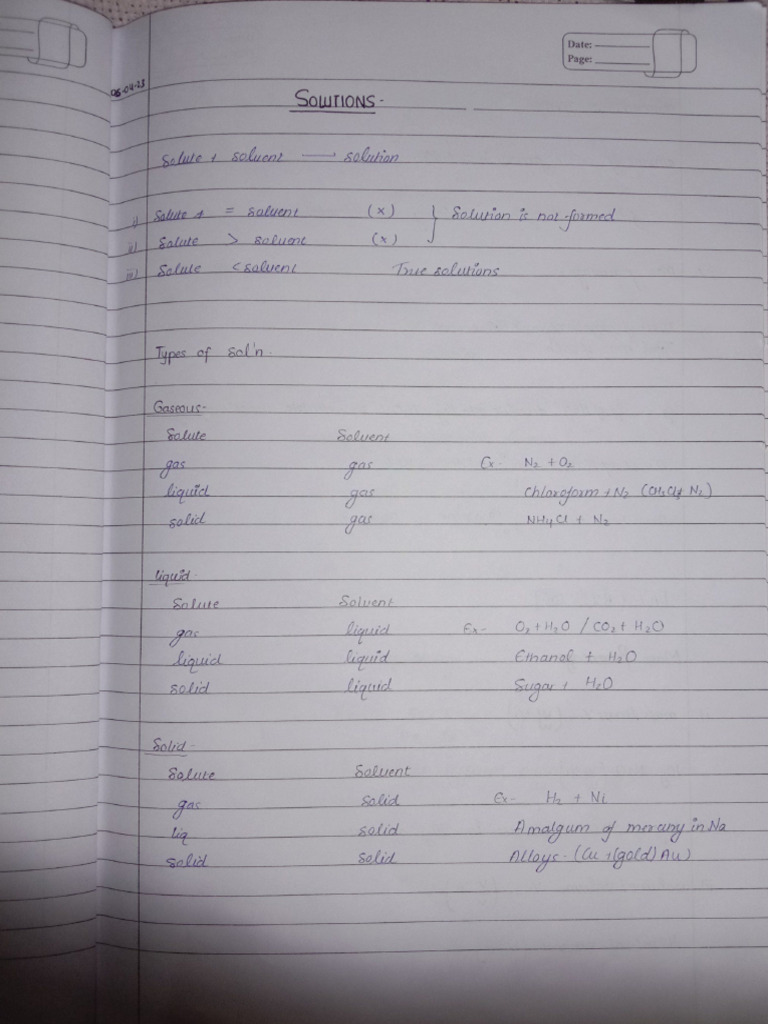 Date:
Page:
05-04-23
SOLUTIONS-
Solute + solvent → solution
i) Solute = solvent (x) } Solution is not formed
ii) Solute > solvent (x)
iii) Solute < solvent True solutions
Types of sol'n.
Gaseous-
Solute Solvent
gas gas Ex- N2 + O2
liquid gas Chloroform + N2
solid gas NH4Cl + N2
liquid-
Solute Solvent
gas liquid Ex- O2 + H2O / CO2 + H2O
liquid liquid Ethanol + H2O
solid liquid Sugar + H2O
Solid-
Solute Solvent
gas solid Ex- H2 + Ni
liq solid Amalgum of mercury in Na
solid solid Alloys- (Cu + (gold) Au)